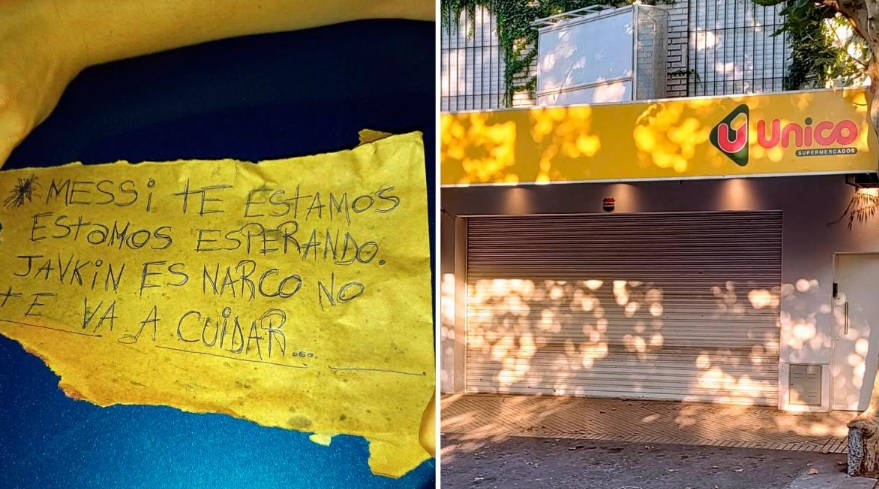 *MESSi TE ESTAMOS
ESTAMOS ESPERANDO.
JAVKIN ES NARCO NO
TE VA A CUIDAR...
Unico
SUPERMERCADOS